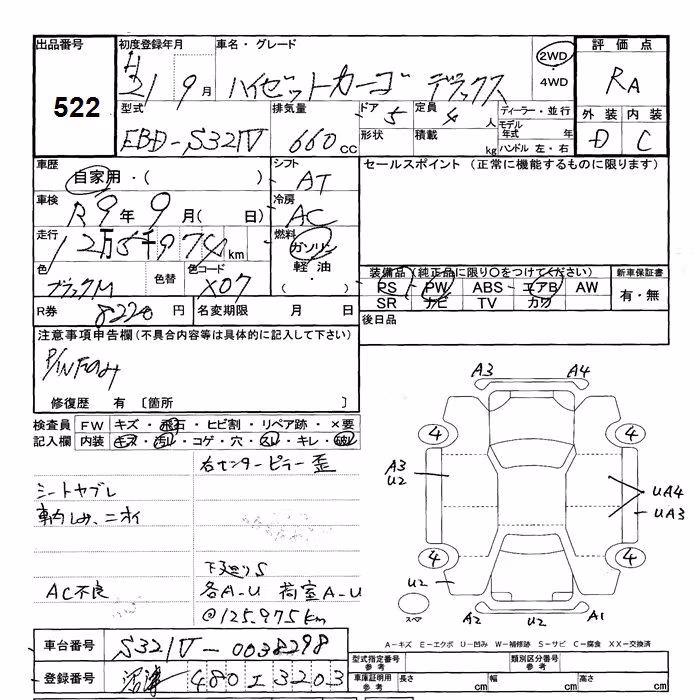 出品番号
522
初度登録年月
H 21 9月
車名・グレード
ハイゼットカーゴ デラックス
2WD
・
4WD
評価点
RA
外装 内装
D C
型式
EBD-S321V
排気量
660cc
ドア
5
形状
定員
4人
積載
kg
ディーラー・並行
モデル
年式 年
ハンドル 左・右
車歴
自家用・( )
シフト
AT
セールスポイント (正常に機能するものに限ります)
車検
R9年9月( 日)
冷房
AC
走行
12万5千974km
燃料
ガソリン
・
軽油
・
色
ブラックM
色替
色コード
X07
装備品(純正品に限り○をつけてください)
PS PW ABS エアB AW
SR ナビ TV カワ
新車保証書
有・無
R券
8220円
名変期限 月 日
後日品
注意事項申告欄(不具合内容等は具体的に記入して下さい)
P/Wドアのみ
修復歴 有 〔箇所 〕
検査員
記入欄
FW キズ・飛石・ヒビ割・リペア跡・×要
内装 キズ・汚レ・コゲ・穴・スレ・キレ・破レ
右センターピラー歪
シートヤブレ
車内しみ、ニオイ
下廻りS
AC不良
各A-U 荷室A-U
@125.975km
A3 A4
4 4
A3
U2
UA4
UA3
4 4
U2
スペア
A2 U2 A1
A-キズ E-エクボ U-凹み W-補修跡 S-サビ C-腐食 XX-交換済
車台番号
S321V-0038298
登録番号
沼津 480 エ 3203
型式指定番号
参考
類別区分番号
参考
車庫証明用
参考
長さ cm 幅 cm 高さ cm